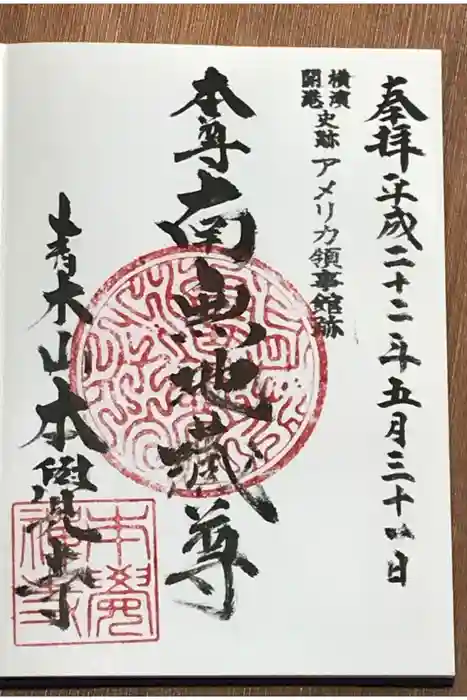 奉拝 平成二十二年五月三十一日
横濱開港史跡アメリカ領事館跡
本尊 南無地蔵尊
青木山本覺寺